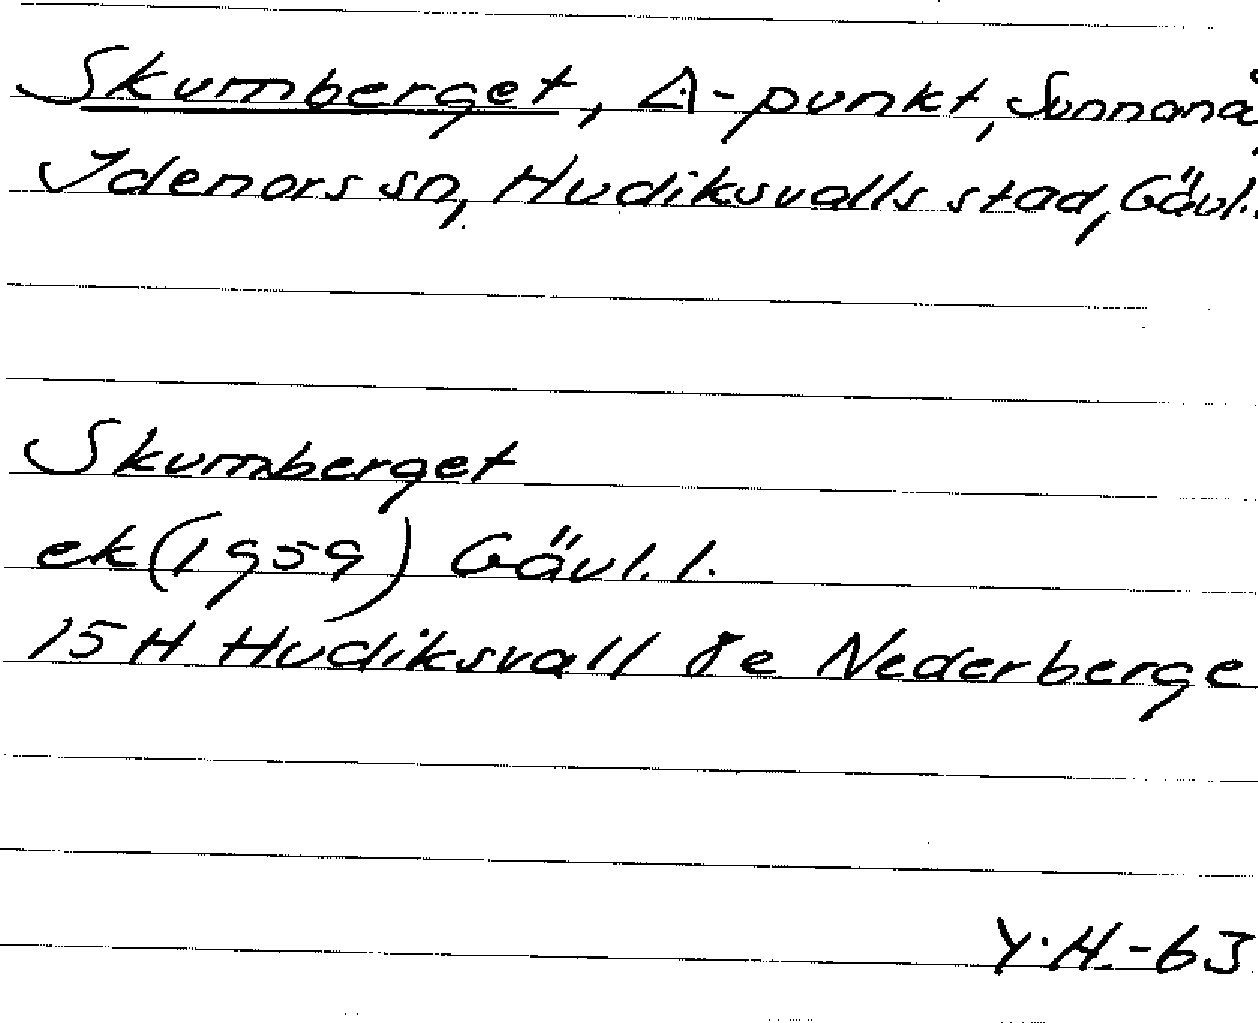 Skumberget, △-punkt, Sunnanå
Idenors sn, Hudiksvalls stad, Gävl.
Skumberget
ek (1959) Gävl. l.
15H Hudiksvall 8e Nederberge
Y.H.-63